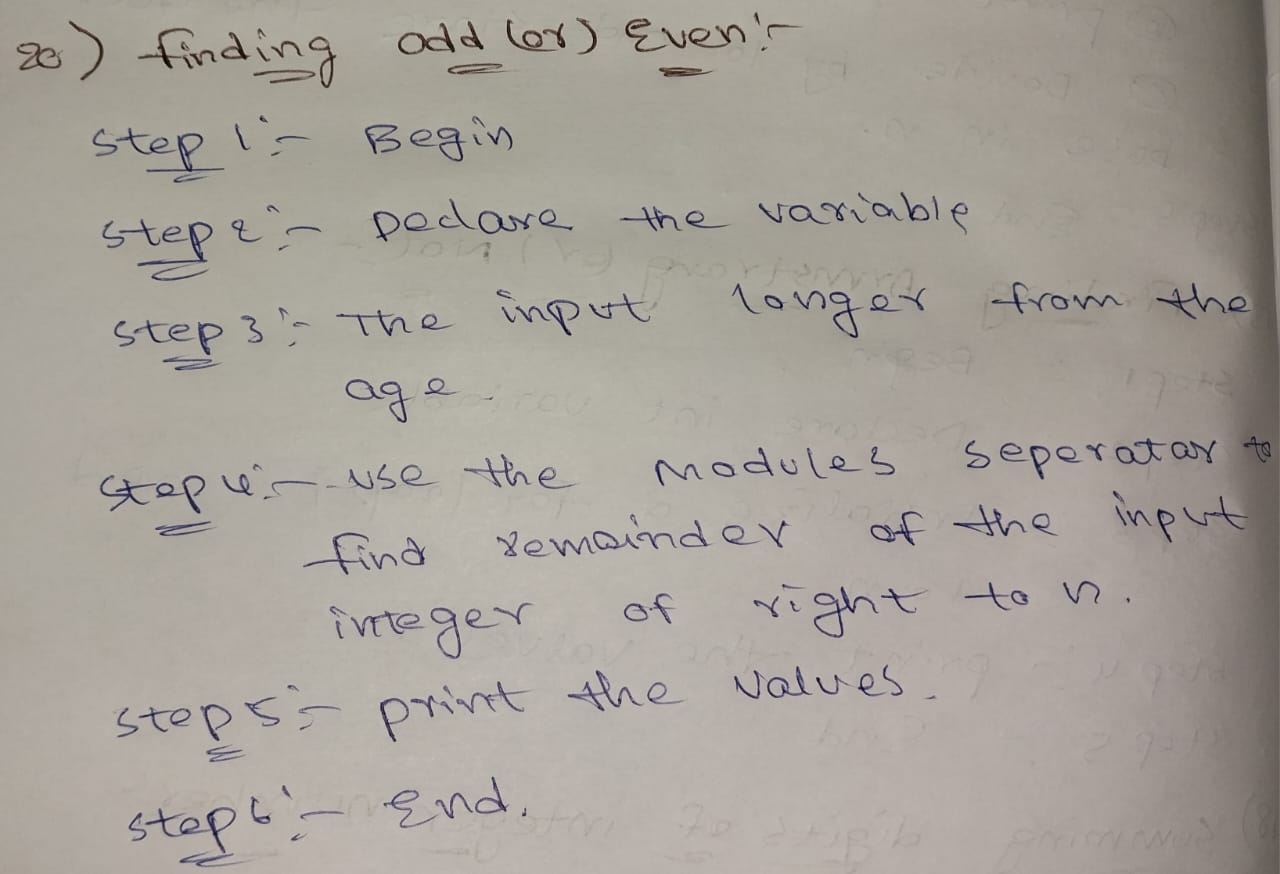 20) finding odd (or) Even:-
step 1:- Begin
step 2:- Declare the variable
step 3:- The input longer from the
age.
step 4:- use the modules seperator to
find remainder of the input
integer of right to n.
step 5:- print the values.
step 6:- End.